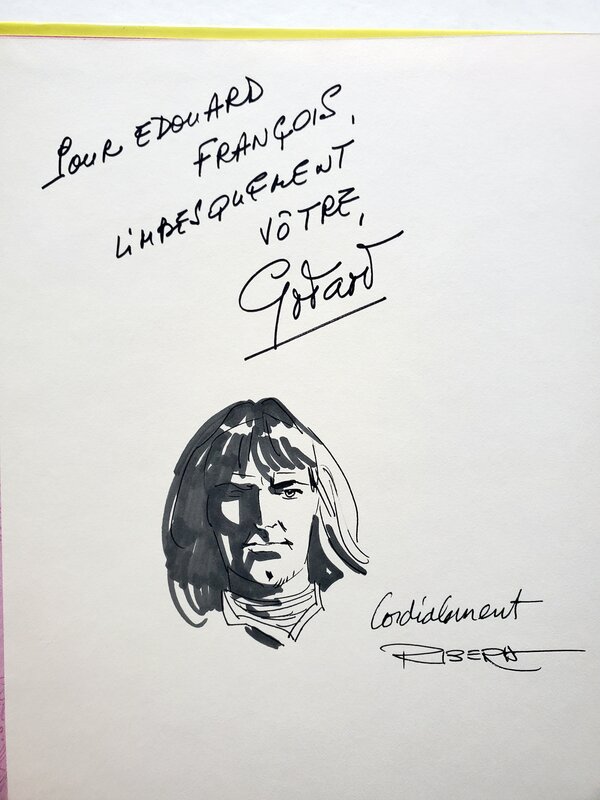 Pour EDOUARD
FRANÇOIS,
LIMBESQUEMENT
VÔTRE,
Godard
Cordialement
RIBERA